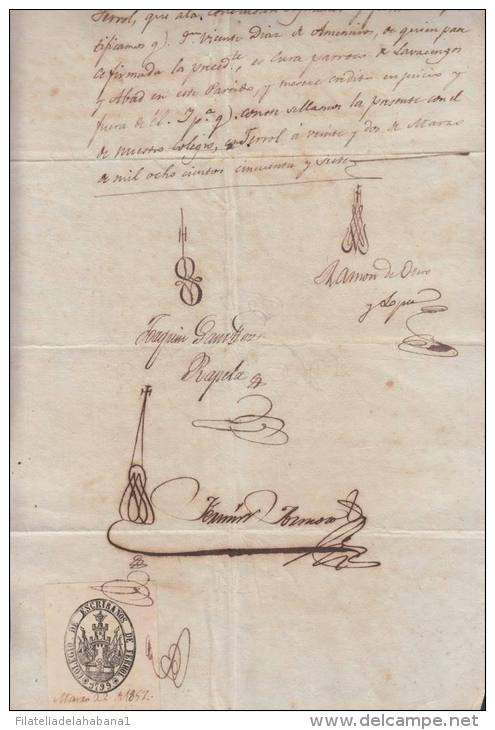 Ferrol, que
tificamos q. Dn. Vicente Diaz de Ameneiro, de quien
es firmada la preced.te, es Cura parroco de Lavacengos
y Abad en este Partido, y merece credito en juicio y
fuera de el. Y p.a q. conste sellamos la presente con el
de nuestro colegio, en Ferrol á veinte y dos de Marzo
de mil ocho cientos cincuenta y siete
Ramon de
y Lopez
Joaquin
Rapela
COLEGIO DE ESCRIBANOS DE FERROL
1799
Marzo 22 de 1857.
Filateliadelahabana1
delcampe.net